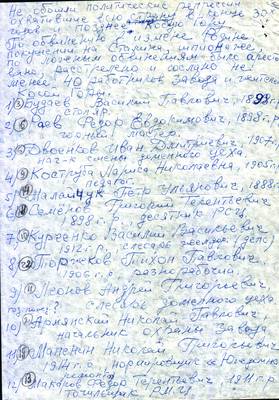 Не обошли политические репрессии
охватившие всю страну в конце 30х
годов и позднее
По обвинению в измене Родине
покушении на Сталина, шпионаже,
по ложным обвинениям было аресто-
вано, расстреляно и сослано не
менее 40 работников завода и жителей
Косой Горы.
1) Бударев Василий Павлович, 1898г.
столяр.
2) Гаев Федор Евдокимович, 1898г.р.
горный мастер.
3) Двоенков Иван Дмитриевич, 1907г.
нач-к смены доменного цеха
4) Костюба Лариса Николаевна, 1905г.
повар
5) Малайчук Петр Ульянович, 1888г.
6) Семёнов Григорий Терентьевич
1898г.р. десятник РСЦ.
7) Курченко Василий Васильевич
1912г.р. слесарь
8) Поржеков Тихон Павлович,
1906г.р. разнорабочий
9) Леонов Андрей Григорьевич
слесарь доменного цеха
10) Армянский Николай Павлович
начальник охраны завода
11) Манохин Николай Григорьевич
1914г.р. нормировщик
12) Макаров Федор Терентьевич, 1911г.р.
точильщик РМЦ